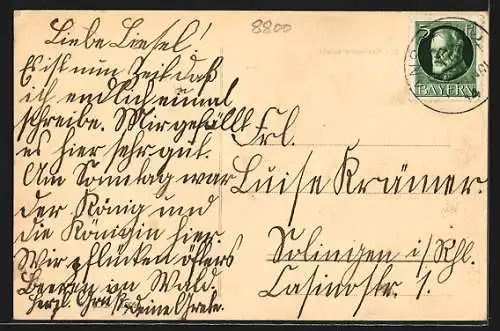 8800
Liebe Liesel!
Es ist nun Zeit daß
ich endlich einmal
schreibe. Mir gefällt
es hier sehr gut.
Am Sonntag war
der König und
die Königin hier.
Wir pflücken öfters
Beeren im Wald.
Herzl. Gruß deine Grete.
Frl.
Luise Krämer.
Solingen i/Rhl.
Casinostr. 1.
5
BAYERN